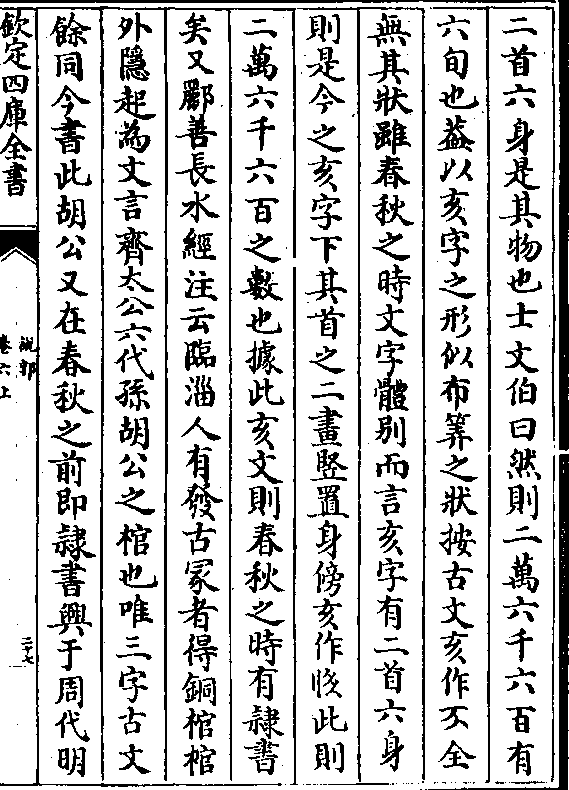 二首六身是其物也士文伯曰然則二萬六千六百有
六旬也葢以亥字之形似布筭之狀按古文亥作𠀅全
無其狀雖春秋之時文字體别而言亥字有二首六身
則是今之亥字下其首之二畫豎置身傍亥作
此則
二萬六千六百之數也據此亥文則春秋之時有隷書
矣又酈善長水經注云臨淄人有發古冢者得銅棺棺
外隱起為文言齊太公六代孫胡公之棺也唯三字古文
餘同今書此胡公又在春秋之前即隷書興于周代明
欽定四庫全書
說郛
卷六上
二十七